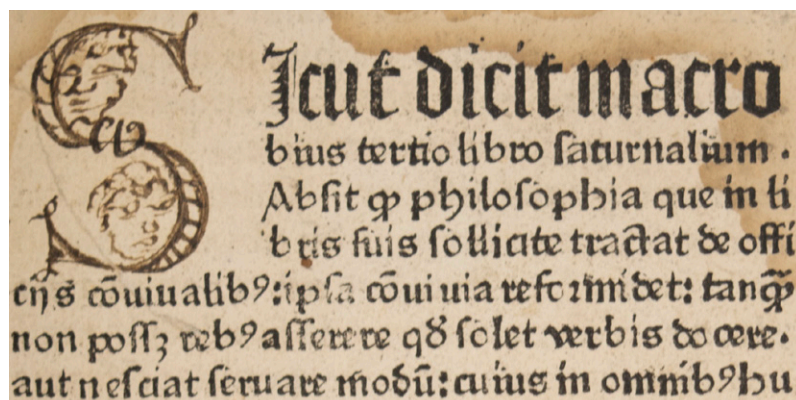 SIcut dicit macro
bius tertio libro ſaturnalium .
Abſit ꝙ philoſophia que in li
bris ſuis ſollicite tractat de offi
cijs cōuiualibꝰ: ipſa cōuiuia reformidet: tanꝙ̄
non poſſꝫ rebꝰ aſſerere qd̄ ſolet verbis docere.
aut neſciat ſeruare modū: cuius in omnibꝰ hu